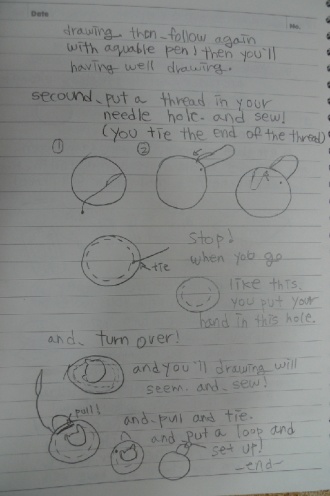 Date
No.
drawing then follow again
with aquable pen! then you'll
having well drawing.
secound. put a thread in your
needle hole. and sew!
(you tie the end of the thread)
① ②
Stop!
when you go
tie
like this.
you put your
hand in this hole.
and. turn over!
and you'll drawing will
seem. and. sew!
pull!
and. pull and tie.
and put a loop and
set up!
-end-